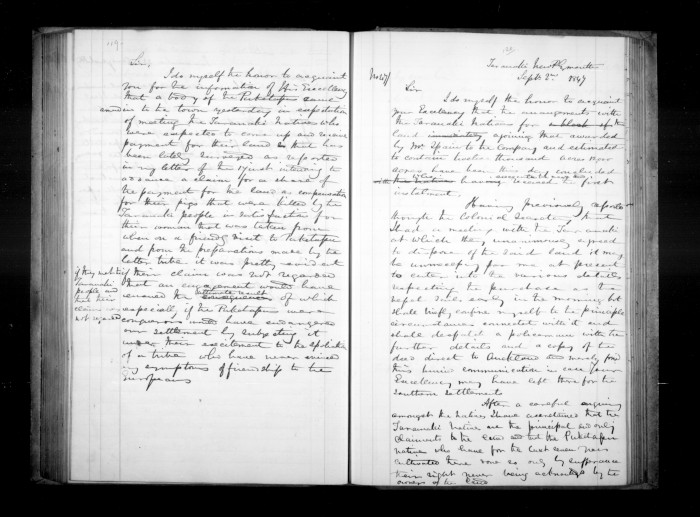 119
Sir,
I do myself the honor to acquaint
you for the information of His Excellency
that a body of the Puketapu came
in to the town yesterday in expectation
of meeting the Taranaki Natives who
were expected to come up and
payment for their land that has
been lately surveyed as reported
in my letter of the intending to
advance a claim for a share of
the payment for the land as compensation
for their pigs that were killed by the
Taranaki people in satisfaction for
their woman that was taken from
them on a friendly visit to Puketapu
and from the preparations made by the
latter tribe it was pretty evident
if their claim was not regarded
that an engagement would have
ensued the of which
especially if the Puketapu were
conquerors would have endangered
our settlement by subjecting it
under their excitement to the
of a tribe who have never evinced
any symptoms of friendship to the
Europeans
if they met the
Taranaki
people and
that their
claim was
not regarded
Taranaki New Plymouth
Sept. 2nd 1847
No 47/
Sir
I do myself the honor to acquaint
your Excellency that the arrangements with
the Taranaki Natives for a block of
land adjoining that awarded
by Mr Spain to the Company and estimated
to contain twelve thousand acres 12,000
acres have been this day concluded
having received the first
instalment.
Having previously reported
through the Colonial Secretary that
I had a meeting with the Taranaki
at which they unanimously agreed
to dispose of the said land it may
be unnecessary for me at present
to enter into the various details
respecting the purchase as the
vessel sails early in the morning but
shall briefly confine myself to the principal
circumstances connected with it and
shall despatch a policeman with the
further details and a copy of the
deed direct to Auckland merely
this brief communication in case your
Excellency may have left there for the
Southern Settlements
After a careful enquiry
amongst the natives I have ascertained that the
Taranaki Natives are the principal and only
claimants to the land and that the Puketapu
natives who have for the last seven years
cultivated there done so only by sufferance
their right never being acknowledged by the
owners of the land